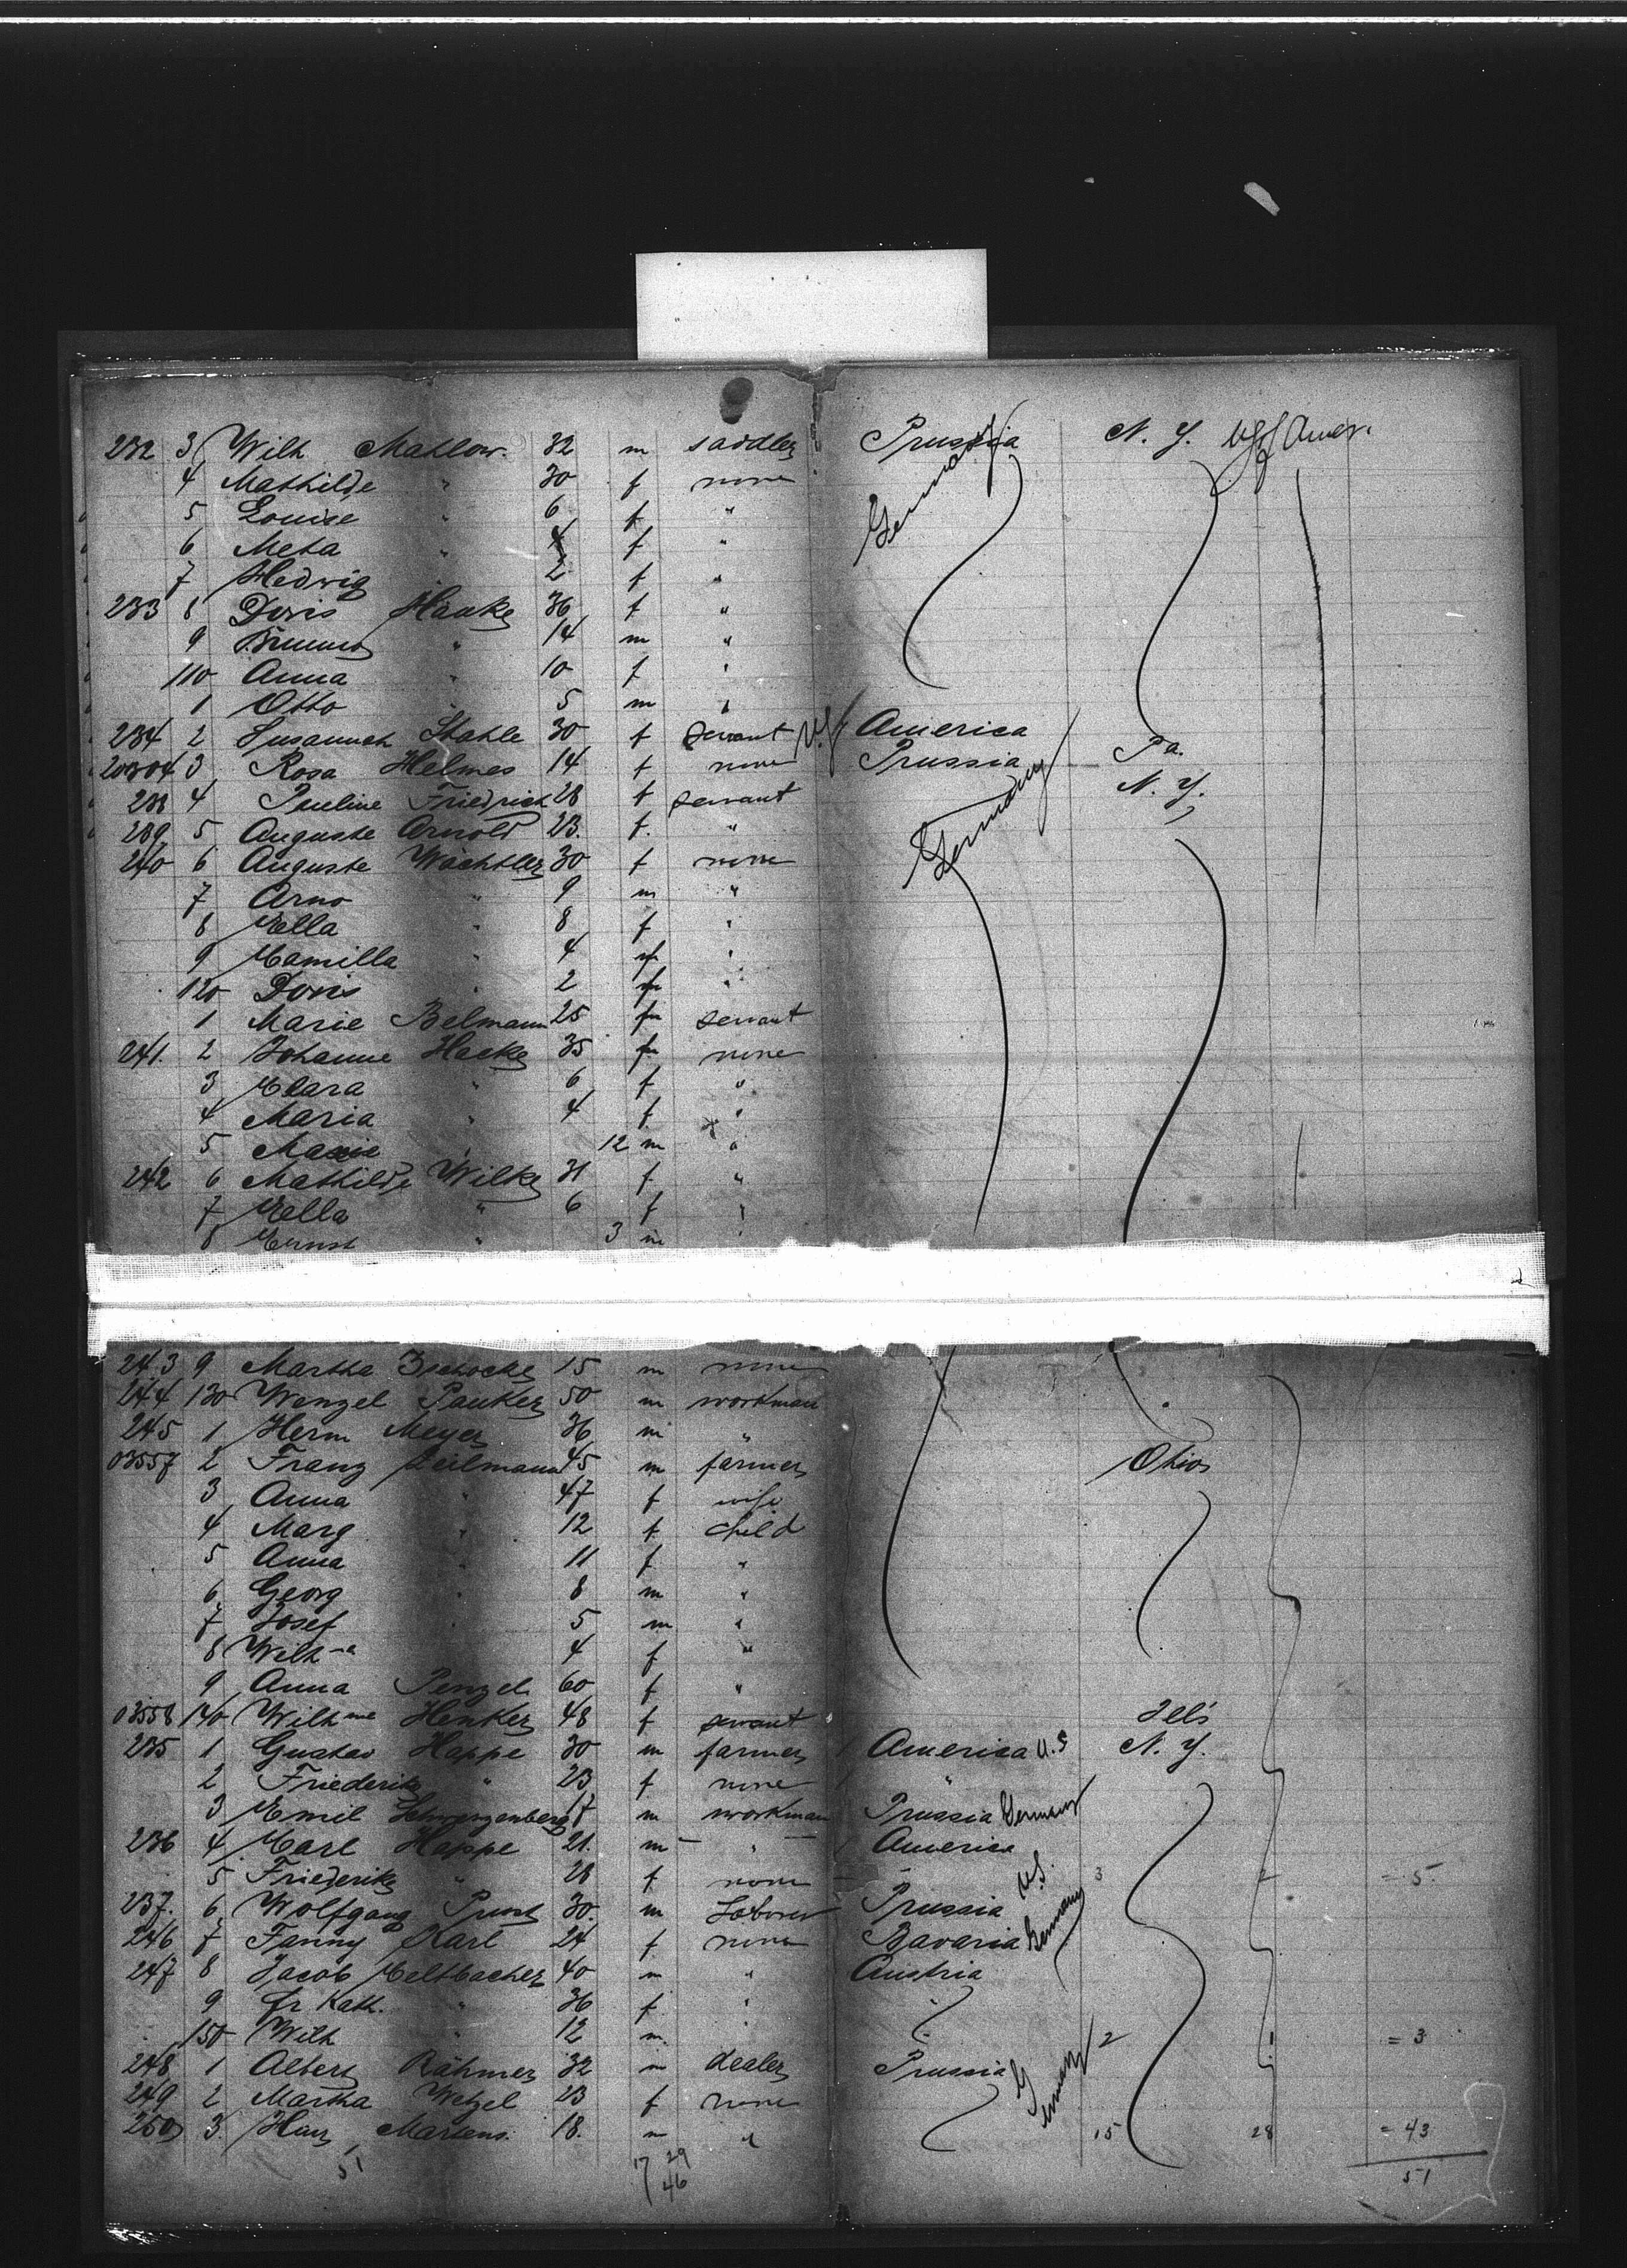 232 3 Wilh Mahlow. 32 m saddler Prussia N. Y. Amer.
4 Mathilde " 30 f none Germany
5 Louise " 6 f "
6 Meta " 4 f "
7 Hedwig 2 f "
233 8 Doris Hanke 36 f "
9 Bruno " 14 m "
110 Anna " 10 f "
1 Otto 5 m "
234 2 Susannah Stahle 30 f servant U.S. America
3 Rosa Helmes 14 f none Prussia Pa.
238 4 Pauline Friedrich 28 f servant Germany N. Y.
239 5 Auguste Arnold 23. f. "
240 6 Auguste Wächtler 30 f none
7 Arno " 9 m "
8 Ella " 8 f "
9 Camilla " 4 f "
120 Doris " 2 f "
1 Marie Belmann 25 f servant
241. 2 Johanne Hacke 35 f none
3 Clara " 6 f "
4 Maria " 4 f "
5 12 m "
242 6 Mathilde Wilke 31 f "
7 Ella " 6 f "
8 Ernst " 3 m "
243 9 Martha Zschocke 15 m none
244 130 Wenzel Pauker 50 m workman
245 1 Herm Meyer 36 m "
03557 2 Franz Zeilmann 45 m farmer Ohio
3 Anna " 47 f wife
4 Marg " 12 f child
5 Anna " 11 f "
6 Georg " 8 m "
7 Josef " 5 m "
8 Wilh-a 4 f "
9 Anna Penzel 60 f "
03558 140 Wilhme Henker 48 f servant
235 1 Gustav Happe 30 m farmer America U.S N. Y.
2 Friederike " 23 f none "
3 Emil 17 m workman Prussia Germany
236 4 Carl Happe 21. m " America
5 Friederike " 28 f none U.S. 3 2 = 5
237. 6 Wolfgang 30. m Laborer Prussia
246 7 Fanny Karl 24 f none Bavaria Germany
247 8 Jacob 40 m " Austria
9 fr Kath. " 36 f "
150 Wilh " 12 m. " 2 1 = 3
248 1 Albert Böhmer 32 m dealer Prussia Germany
249 2 Martha Wetzel 23 f none
250 3 Hans Martens. 18. m " 15 28 = 43
51 17 29 51
46